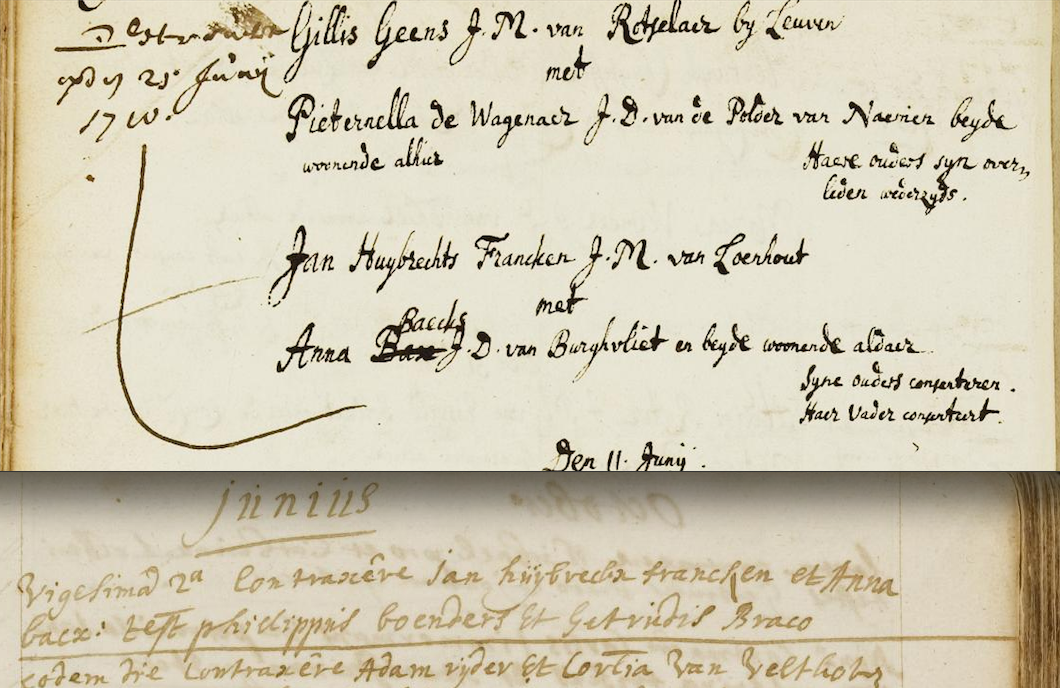 Gillis Geens J. M. van Rotselaer by Leuven
21 Junij
met
1710.
Pieternella de Wagenaer J. D. van de Polder van Naemen beyde
woonende alhier
Haere ouders syn over-
leden wederzyds.
Jan Huybrechts Francken J. M. van Loenhout
met
Baecks
Anna Bax J. D. van Burghvliet en beyde woonende aldaer
Syne ouders consenteren.
Haer Vader consenteert.
Den 11. Junij.
Junius
Vigesimâ 2a Contraxêre Jan huijbrechx francken et Anna
bacx: test philippus boenders et Getrudis Braco
eodem die Contraxêre Adam rijder et